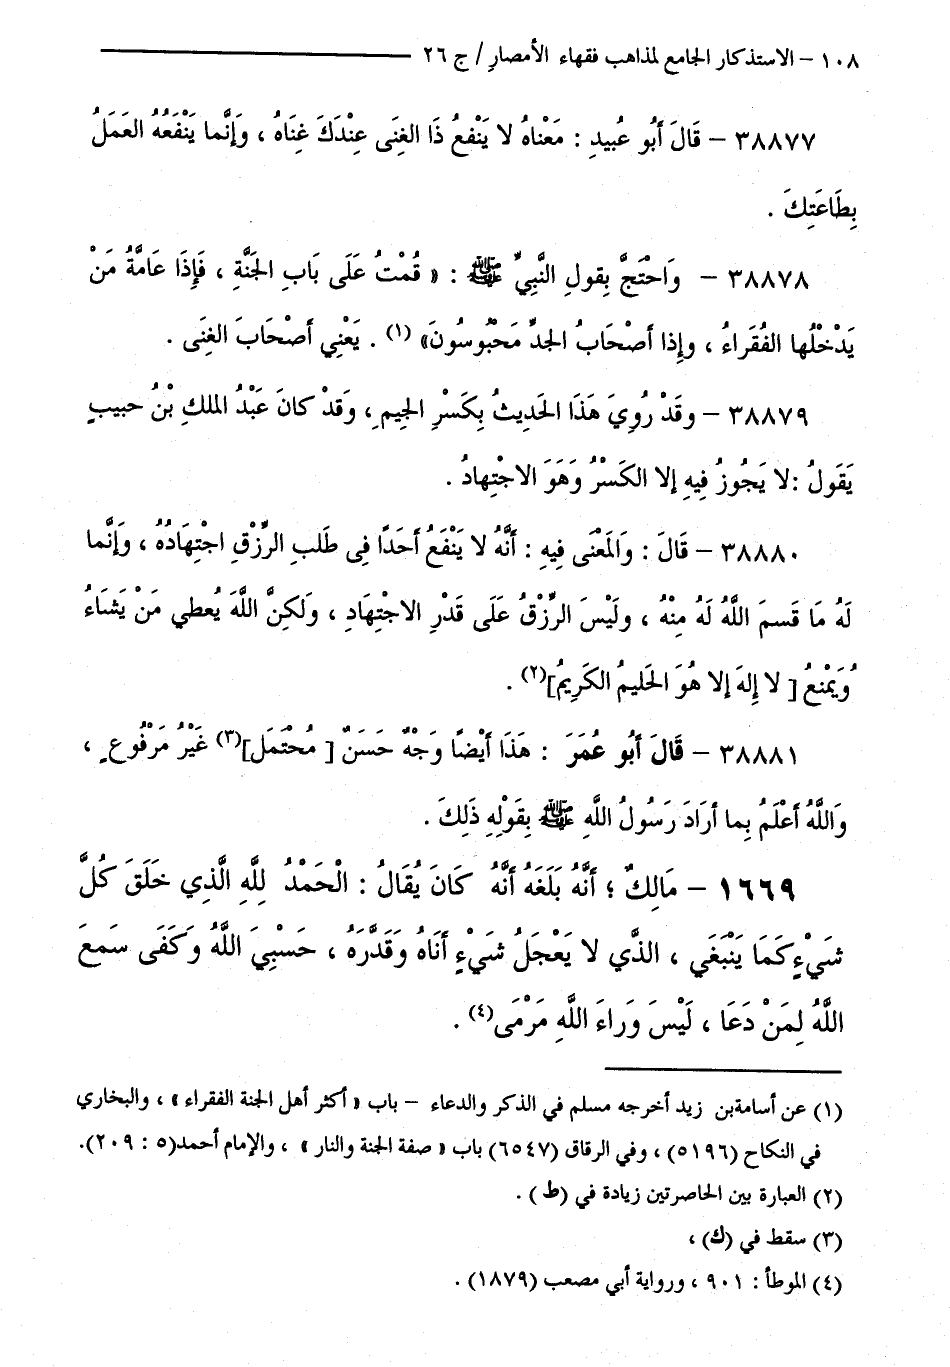 ١٠٨ – الاستذكار الجامع لمذاهب فقهاء الأمصار / ج ٢٦
٣٨٨٧٧ – قَالَ أَبُو عُبيدٍ : مَعْنَاهُ لا يَنْفعُ ذَا الغِنَى عِنْدَكَ غِنَاهُ ، وَإِنَّما يَنْفَعُهُ العَمَلُ
بِطَاعَتِكَ .
٣٨٨٧٨ – وَاحْتَجَّ بِقولِ النَّبِيِّ ﷺ : « قُمْتُ عَلَى بَابِ الجَنَّةِ ، فَإِذَا عَامَّةُ مَنْ
يَدْخْلُها الفُقَراءُ ، وإِذا أَصْحَابُ الجدِّ مَحْبُوسُونَ» (١) . يَعْنِي أَصْحَابَ الغِنَى .
٣٨٨٧٩ – وقَدْ رُوِيَ هَذَا الحَدِيثُ بِكَسْرِ الجِيمِ ، وَقدْ كانَ عَبْدُ الملكِ بْنُ حبيبٍ
يَقَولُ :لا يَجُوزُ فِيهِ إلا الكَسْرُ وَهَوَ الاجْتِهادُ .
٣٨٨٨٠ – قَالَ : وَالمَعْنَى فِيهِ : أَنَّهُ لا يَنْفَعُ أَحَدًا فِى طَلبِ الرِّزْقِ اجْتِهَادُهُ ، وَإِنَّما
لَهُ مَا قَسمَ اللَّهُ لَهُ مِنْهُ ، ولَيْسَ الرِّزْقُ عَلَى قَدْرِ الاجْتِهَادِ ، وَلكِنَّ اللَّهَ يُعطي مَنْ يَشَاءُ
وَيَمْنعُ [ لا إِلهَ إلا هُوَ الحَليمُ الكَرِيمُ](٢) .
٣٨٨٨١ – قَالَ أَبُو عُمَرَ : هَذَا أَيْضًا وَجْهٌ حَسَنٌ [ مُحْتَمَل](٣) غَيْرُ مَرْفُوعٍ ،
وَاللَّهُ أَعْلَمُ بِما أَرَادَ رَسُولُ اللَّهِ ﷺ بِقَوْلِهِ ذَلِكَ .
١٦٦٩ – مَالِكٌ ؛ أَنَّهُ بَلَغَه أَنَّهُ كَانَ يُقَالُ : الْحَمْدُ لِلَّهِ الَّذِي خَلَقَ كُلَّ
شَيْءٍ كَمَا يَنْبَغَي ، الذَّي لا يَعْجَلُ شَيْءٍ أَنَاهُ وَقَدَّرَهُ ، حَسْبِيَ اللَّهُ وَكَفَى سَمِعَ
اللَّهُ لِمَنْ دَعَا ، لَيْسَ وَرَاءَ اللَّهِ مَرْمَى(٤) .
(١) عن أسامةبن زيد أخرجه مسلم في الذكر والدعاء – باب « أكثر أهل الجنة الفقراء » ، والبخاري
في النكاح (٥١٩٦) ، وفي الرقاق (٦٥٤٧) باب « صفة الجنة والنار » ، والإمام أحمد(٥ : ٢٠٩).
(٢) العبارة بين الحاصرتين زيادة في (ط) .
(٣) سقط في (ك) ،
(٤) الموطأ : ٩٠١ ، ورواية أبي مصعب (١٨٧٩) .